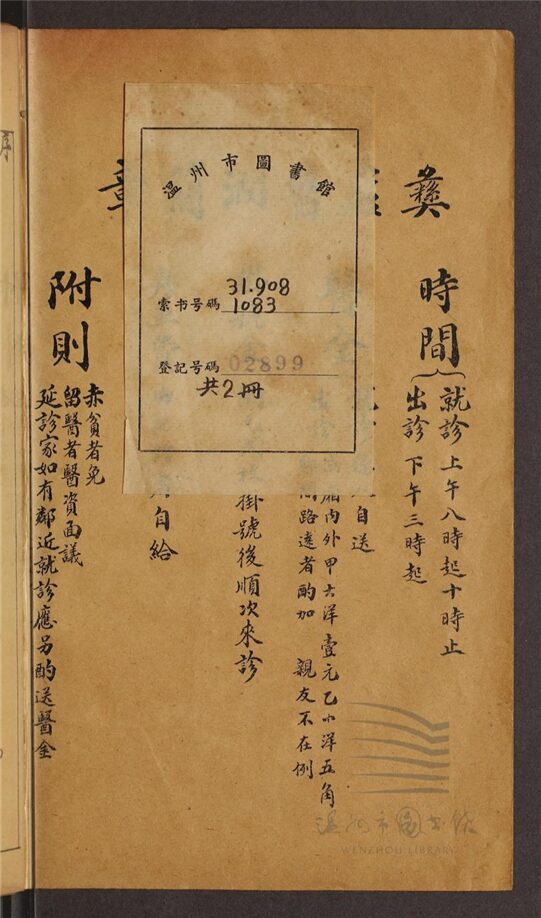 彝
時間
就診 上午八時起十時止
出診 下午三時起
自送
內外甲大洋壹元乙小洋五角
路遠者酌加 親友不在例
掛號後順次來診
自給
章
附則
赤貧者免
留醫者醫資面議
延診家如有鄰近就診應另酌送醫金
溫州市圖書館
索书号碼 31.908
1083
登記号碼 02899
共2冊
序
温州市图书馆
WENZHOU LIBRARY